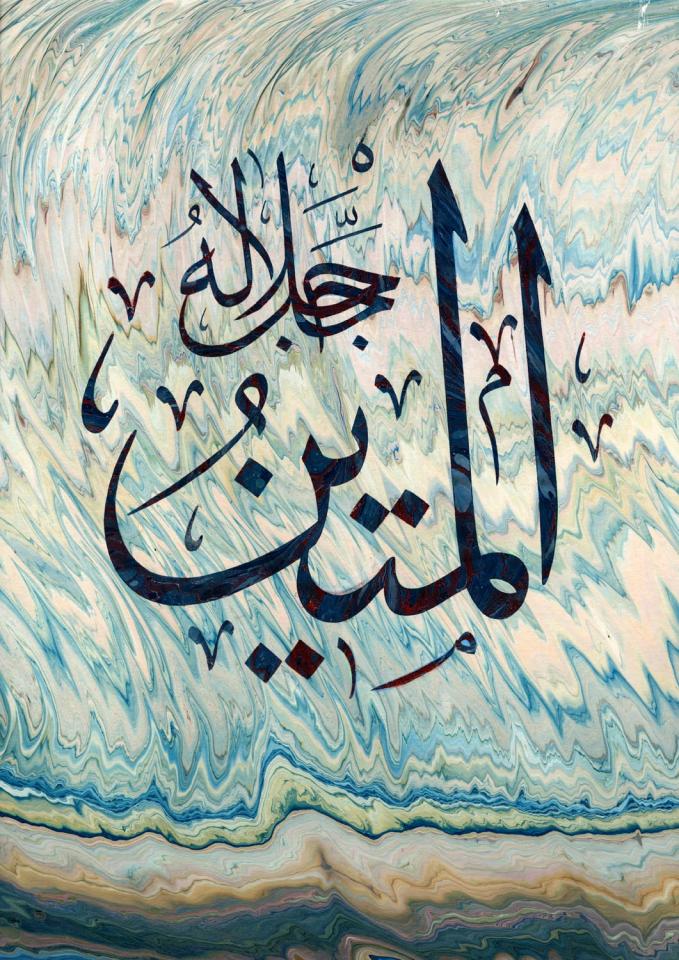 المتينُ
جَلَّ جلالهُ